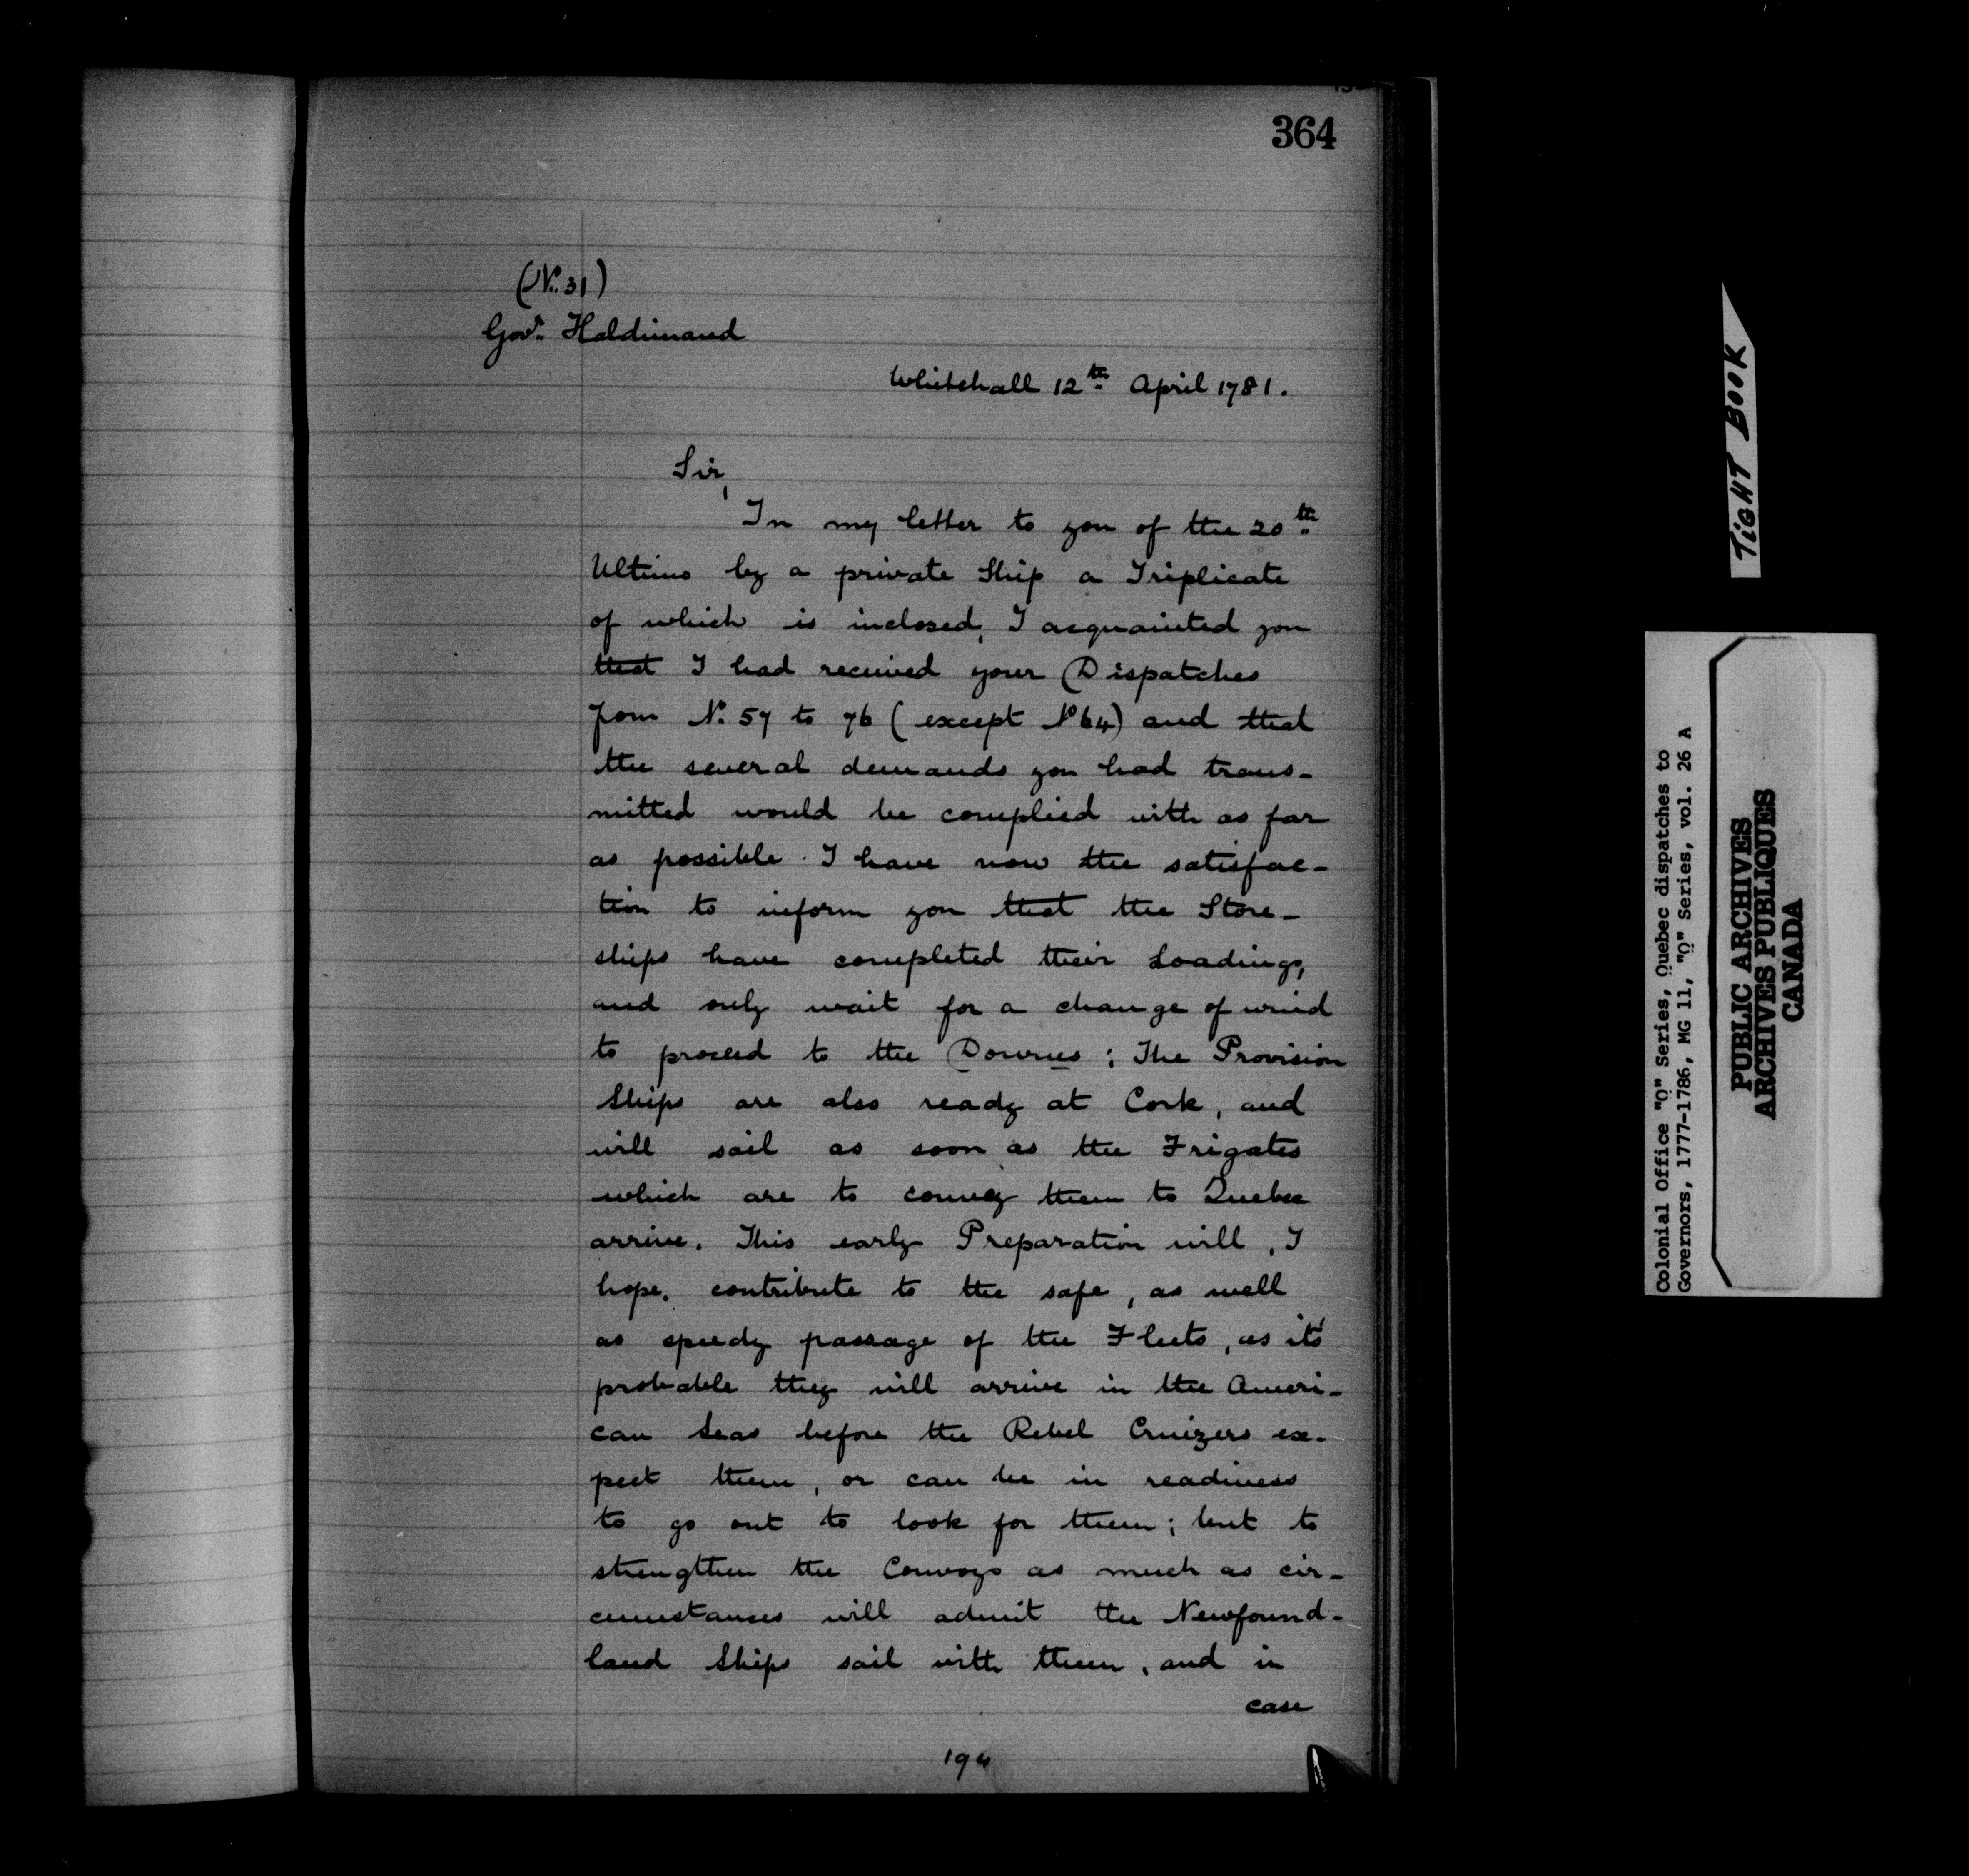 364
(No. 31)
Govr. Haldimand
Whitehall 12th April 1781.
Sir,
In my letter to you of the 20th
Ultimo by a private Ship a Triplicate
of which is inclosed, I acquainted you
that I had received your Dispatches
from No. 57 to 76 (except No 64) and that
the several demands you had trans-
mitted would be complied with as far
as possible. I have now the satisfac-
tion to inform you that the Store-
ships have completed their Loadings,
and only wait for a change of wind
to proceed to the Downs; The Provision
Ships are also ready at Cork, and
will sail as soon as the Frigates
which are to convoy them to Quebec
arrive. This early Preparation will, I
hope, contribute to the safe, as well
as speedy passage of the Fleets, as it's
probable they will arrive in the Ameri-
can Seas before the Rebel Cruizers ex-
pect them, or can be in readiness
to go out to look for them; but to
strengthen the Convoys as much as cir-
cumstances will admit the Newfound-
land Ships sail with them, and in
case
194
TIGHT BOOK
Colonial Office "Q" Series, Quebec dispatches to
Governors, 1777-1786, MG 11, "Q" Series, vol. 26 A
PUBLIC ARCHIVES
ARCHIVES PUBLIQUES
CANADA